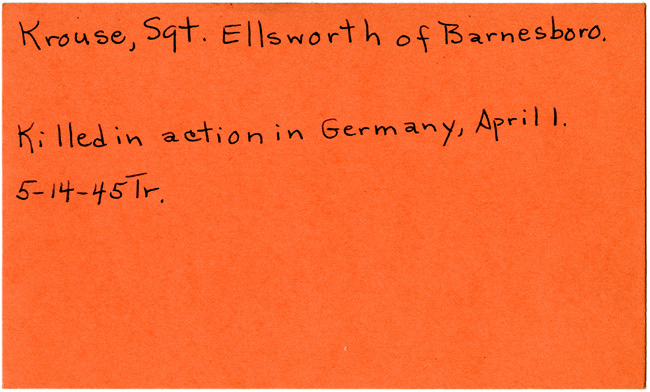 Krouse, Sgt. Ellsworth of Barnesboro.
Killed in action in Germany, April 1.
5-14-45 Tr.